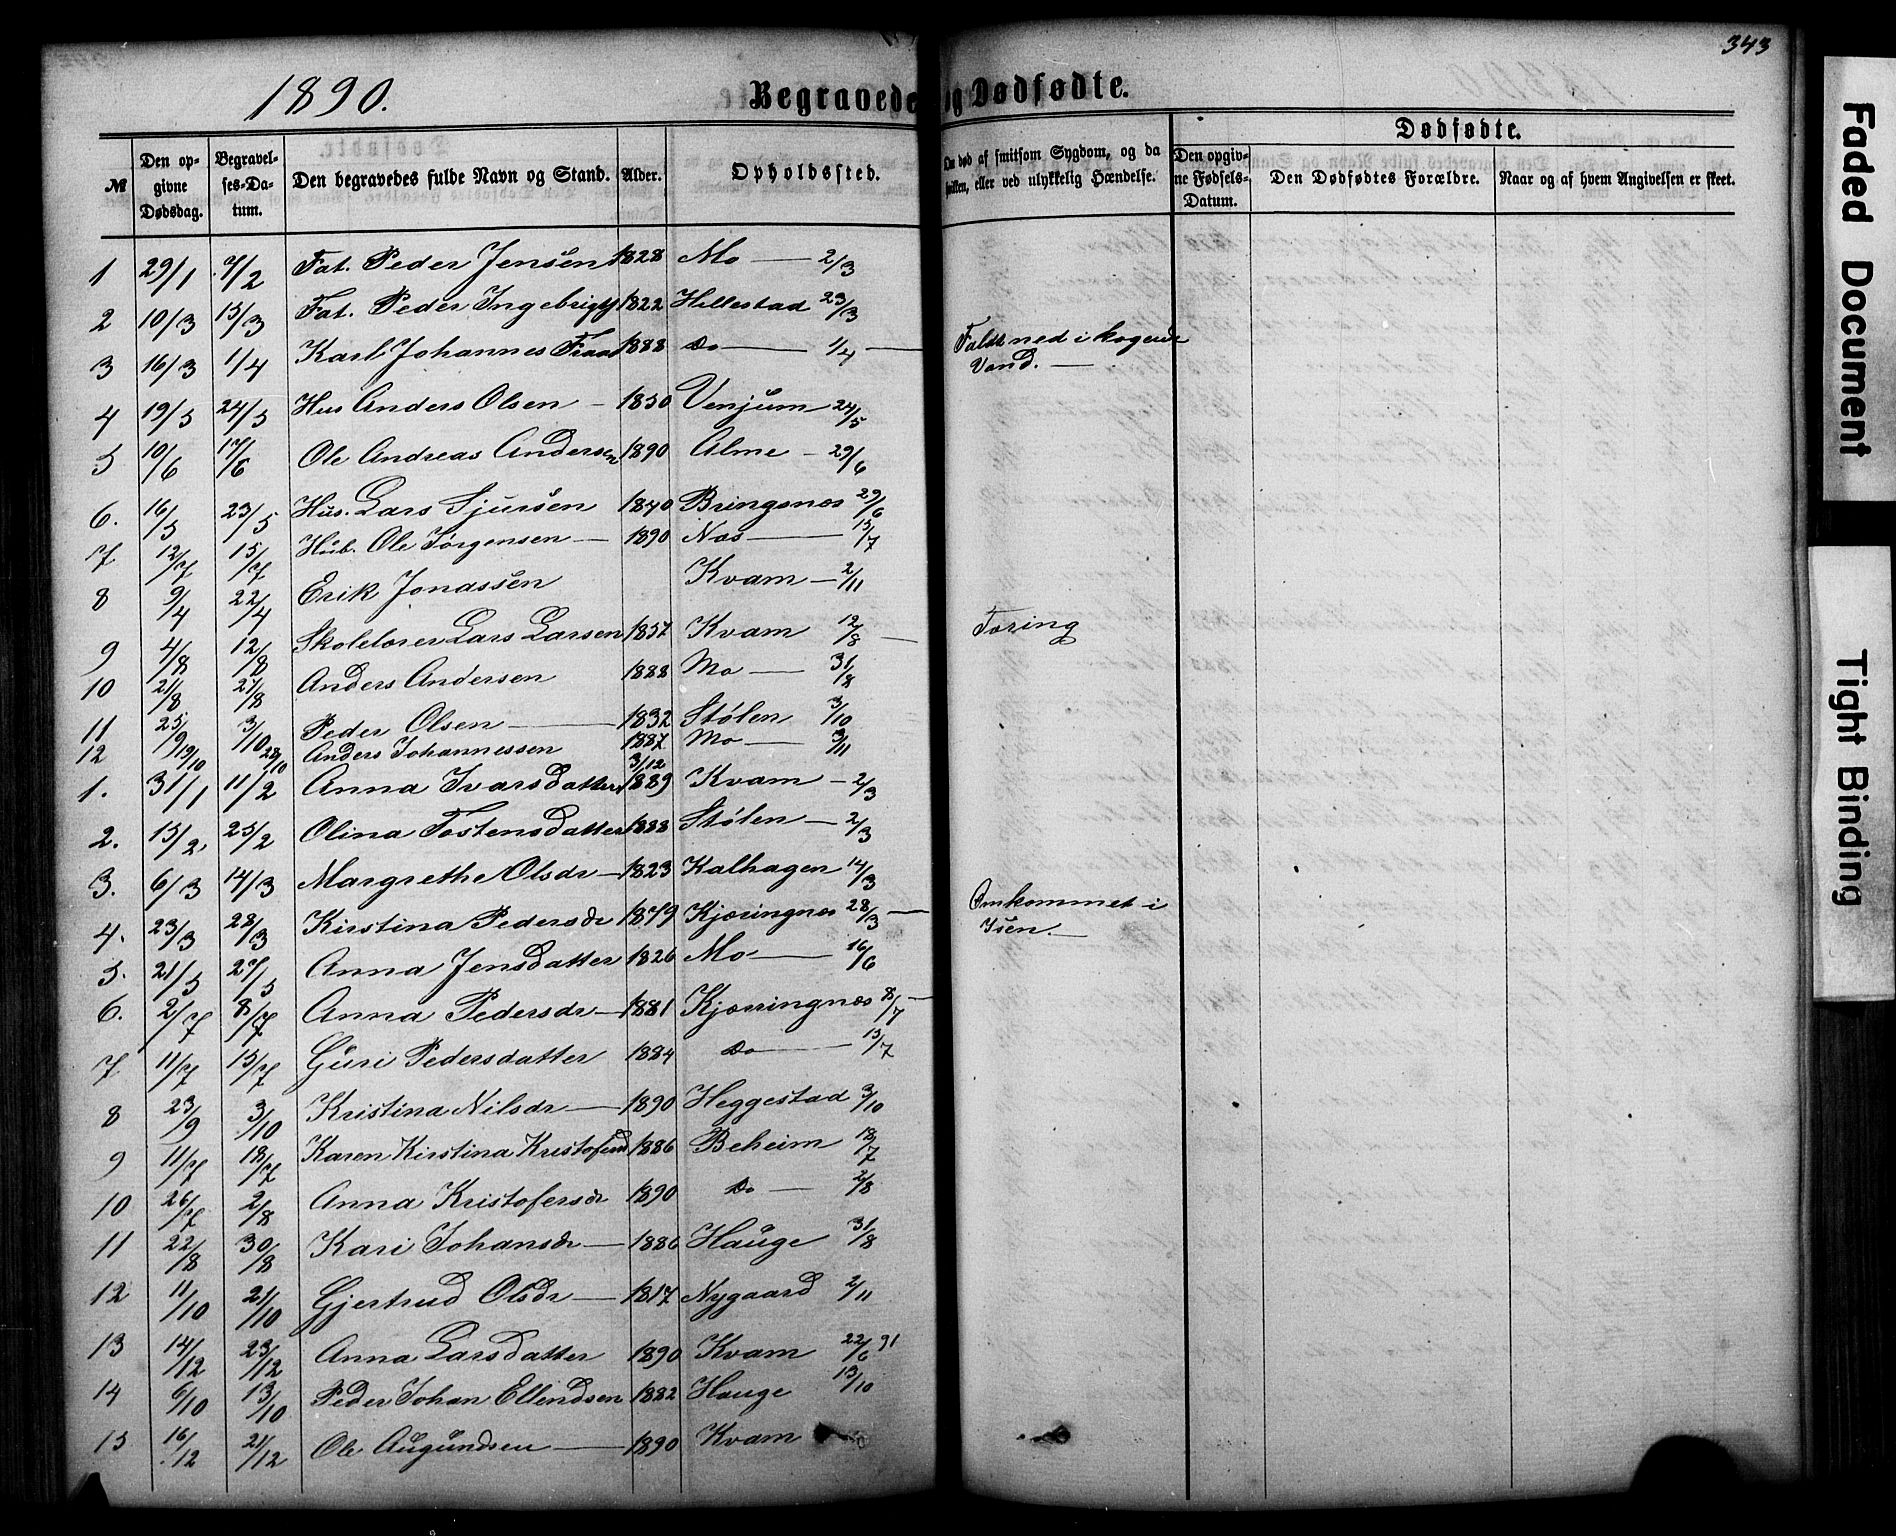 343
1890.
Begravede og Dødfødte.
№
Den opgivne Dødsdag.
Begravelses-Datum.
Den begravedes fulde Navn og Stand.
Alder.
Opholdssted.
Om død af smitsom Sygdom, og da hvilken, eller ved ulykkelig Hændelse.
Dødfødte.
Den opgivne Fødsels-Datum.
Den Dødfødtes Forældre.
Naar og af hvem Angivelsen er skeet.
1 29/1 7/2 Fat. Peder Jensen 1828 Mo — 2/3
2 10/3 15/3 Fat. Peder Ingebrigts 1822 Hillestad 23/3
3 16/3 1/4 Karl Johannes 1888 Do — 1/4 — Faldt ned i kogende Vand. —
4 19/5 24/5 Hus Anders Olsen — 1850 Venjum 24/5
5 10/6 17/6 Ole Andreas Andersen 1890 Alme — 29/6
6. 16/5 23/5 Hus. Lars Sjursen 1840 Bringsnæs 29/6
7 12/7 15/7 Hub. Ole Jørgensen — 1890 Næs — 15/7
8 9/4 22/4 Erik Jonassen Kvam — 2/11
9 4/8 12/8 Skolelærer Lars Larsen 1857 Kvam 12/8 — Tæring
10 21/8 27/8 Anders Andersen 1888 Mo — 31/8
11 25/9 3/10 Peder Olsen — 1832 Stølen 3/10
12 19/10 28/10 Anders Johannessen 1887 3/12 Mo — 3/11
1. 31/1 11/2 Anna Ivarsdatter 1889 Kvam — 2/3
2. 15/2 25/2 Olina Tostensdatter 1888 Stølen — 2/3
3. 6/3 14/3 Margrethe Olsdr — 1823 Kalhagen 14/3
4. 23/3 28/3 Kirstina Pedersdr 1879 Kjæringnæs 28/3 — Omkommet i Isen. —
5. 21/5 27/5 Anna Jensdatter 1826 Mo — 16/6
6. 2/7 8/7 Anna Pedersdr — 1881 Kjæringnæs 8/7 —
7 11/7 15/7 Guri Pedersdatter 1884 Do — 15/7
8 23/9 3/10 Kristina Nilsdr — 1890 Heggestad 3/10
9 11/7 18/7 Karen Kirstina Kristofersd 1886 Beheim 18/7
10 26/7 2/8 Anna Kristofersdr 1890 Do — 2/8
11 22/8 30/8 Kari Johansdr — 1886 Hauge 31/8
12 11/10 21/10 Gjertrud Olsdr — 1817 Nygaard 2/11
13 14/12 23/12 Anna Larsdatter 1890 Kvam 22/6 91
14 6/10 13/10 Peder Johan Ellendsen 1882 Hauge 13/10
15 16/12 21/12 Ole Augundsen — 1890 Kvam
Faded Document
Tight Binding